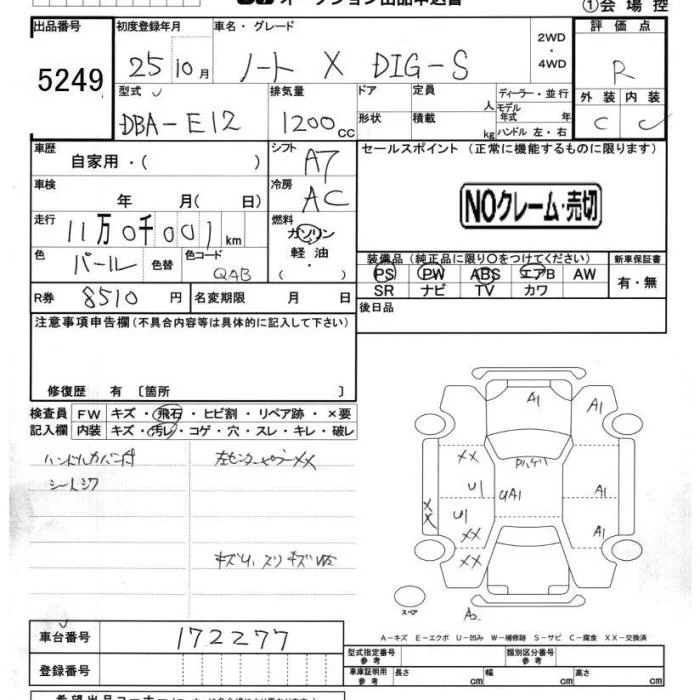 ①会場控
出品番号 初度登録年月 車名・グレード 2WD・4WD 評価点
5249 25 10月 ノート X DIG-S R
型式 排気量 ドア 定員 人 ディーラー・並行 外装 内装
モデル年式 年
DBA-E12 1200cc 形状 積載 kg ハンドル 左・右 C C
車歴 シフト セールスポイント（正常に機能するものに限ります）
自家用・（ ） A7
車検 冷房
年 月（ 日） AC NOクレーム・売切
走行 燃料
11万0千001km ガソリン・
色 色替 色コード 軽油・
パール QAB （ ）
装備品（純正品に限り〇をつけてください） 新車保証書
PS PW ABS エアB AW 有・無
SR ナビ TV カワ
R券 8510円 名変期限 月 日 後日品
注意事項申告欄（不具合内容等は具体的に記入して下さい）
修復歴 有 〔箇所 〕
検査員 FW キズ・飛石・ヒビ割・リペア跡・×要
記入欄 内装 キズ・汚レ・コゲ・穴・スレ・キレ・破レ
ハンドルカバー付 左センターピラーXX
シートシワ
A1 A1
XX Pハゲ
U1 UA1 A1
XX U1
XX A1
XX
スペア A2
A-キズ E-エクボ U-凹み W-補修跡 S-サビ C-腐食 XX-交換済
車台番号 172277
登録番号
型式指定番号 参考 類別区分番号 参考
車庫証明用 参考 長さ cm 幅 cm 高さ cm